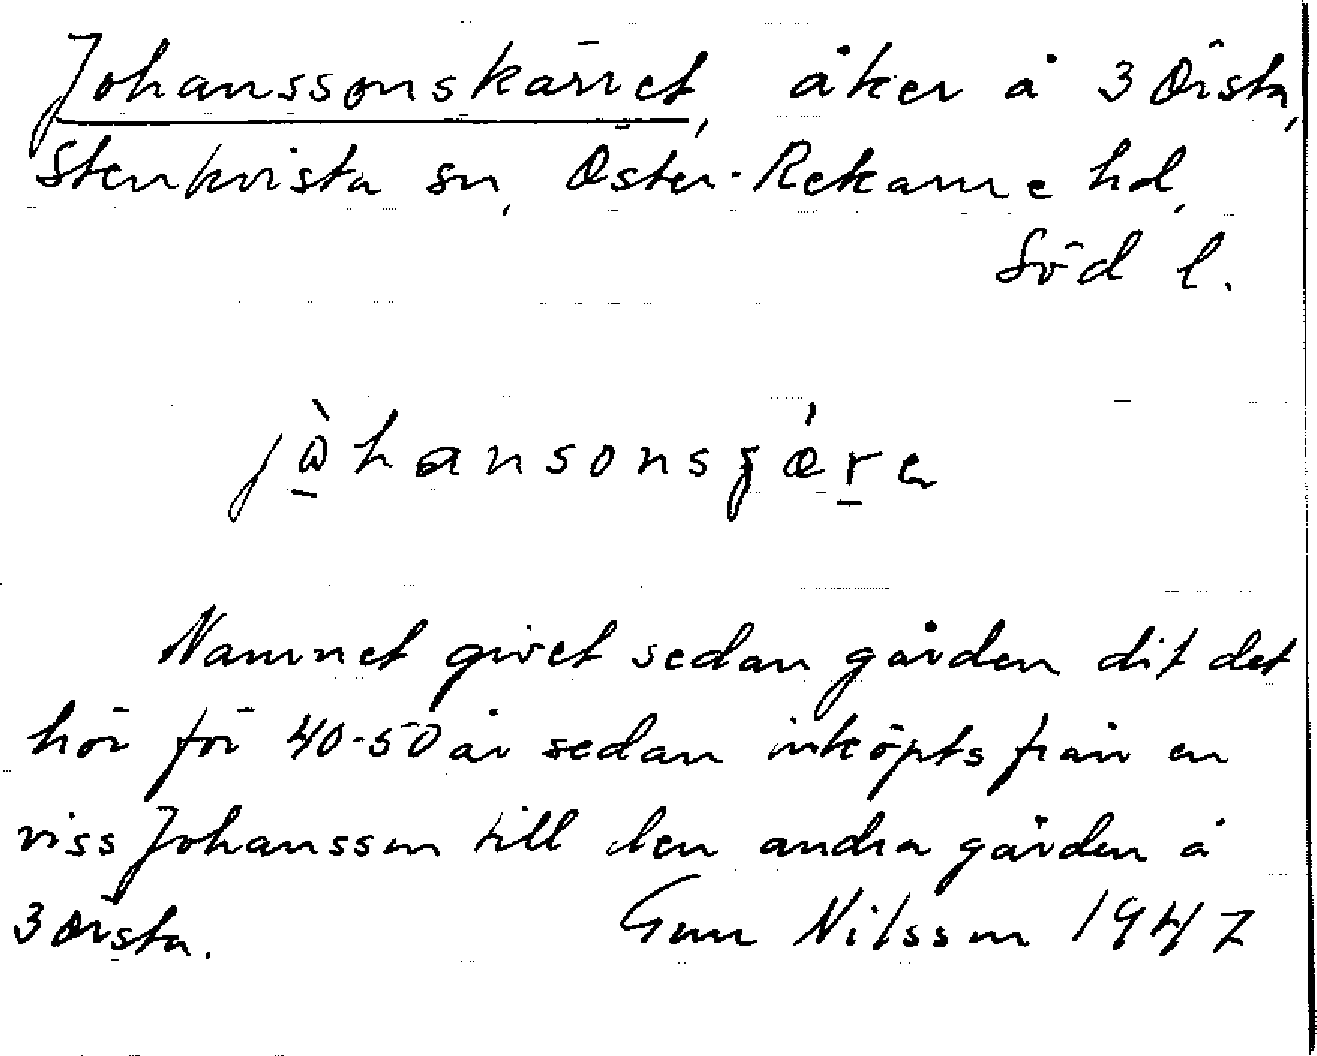 Johanssonskärret, åker å 3 Örsta,
Stenkvista sn, Öster-Rekarne hd,
Söd l.
jɷ̀hansonsɟǽra
Namnet givet sedan gården dit det
hör för 40-50 år sedan inköpts från en
viss Johansson till den andra gården å
3 Örsta. Gun Nilsson 1947